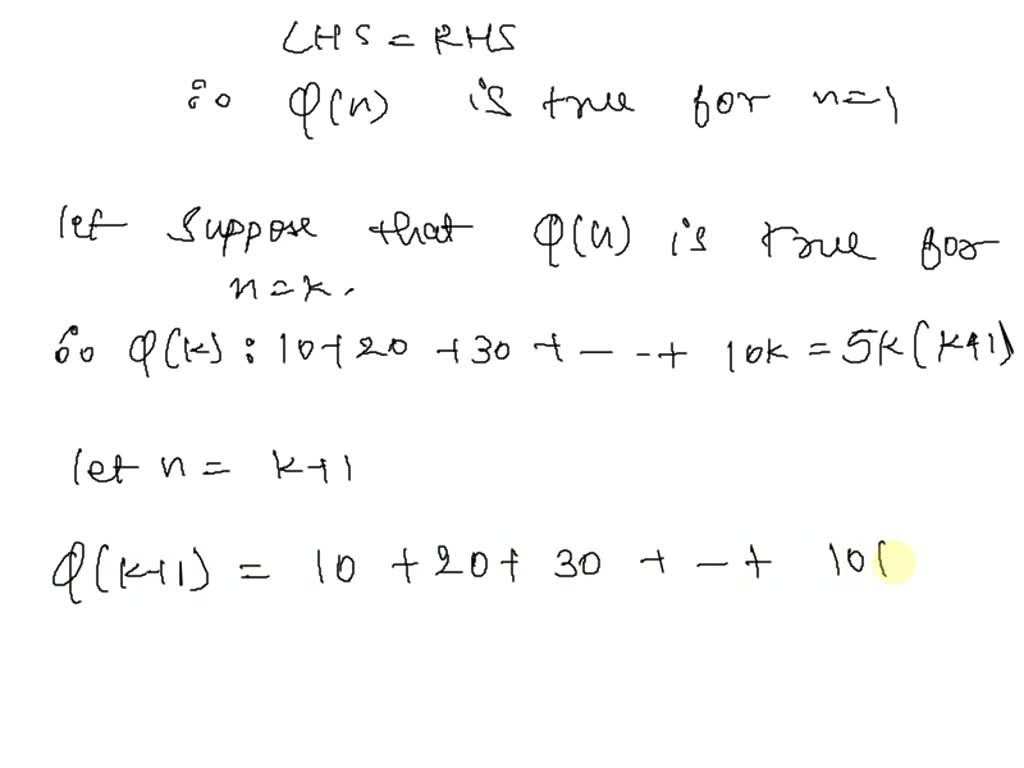 LHS = RHS
∴ P(n) is true for n=1
let suppose that P(n) is true for
n=k.
∴ P(k): 10+20+30+---+ 10k = 5k(k+1)
let n = k+1
P(k+1) = 10+20+30+-+ 10(